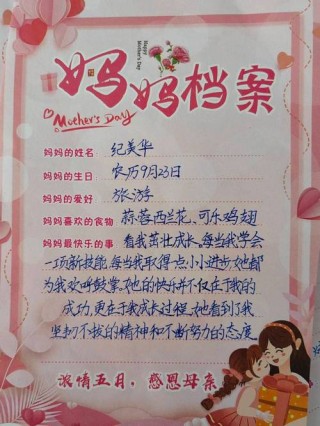 Happy
Mother's Day
妈妈档案
Mother's Day
妈妈的姓名 纪美华
妈妈的生日 农历9月23日
妈妈的爱好 旅游
妈妈喜欢的食物 蒜蓉西兰花、可乐鸡翅
妈妈最快乐的事 看我茁壮成长,每当我学会
一项新技能,每当我取得一点小小进步,她都
为我欢呼鼓掌,她的快乐并不仅在于我的
成功,更在于我成长过程,她看到了我
坚韧不拔的精神和不断努力的态度
浓情五月,感恩母亲